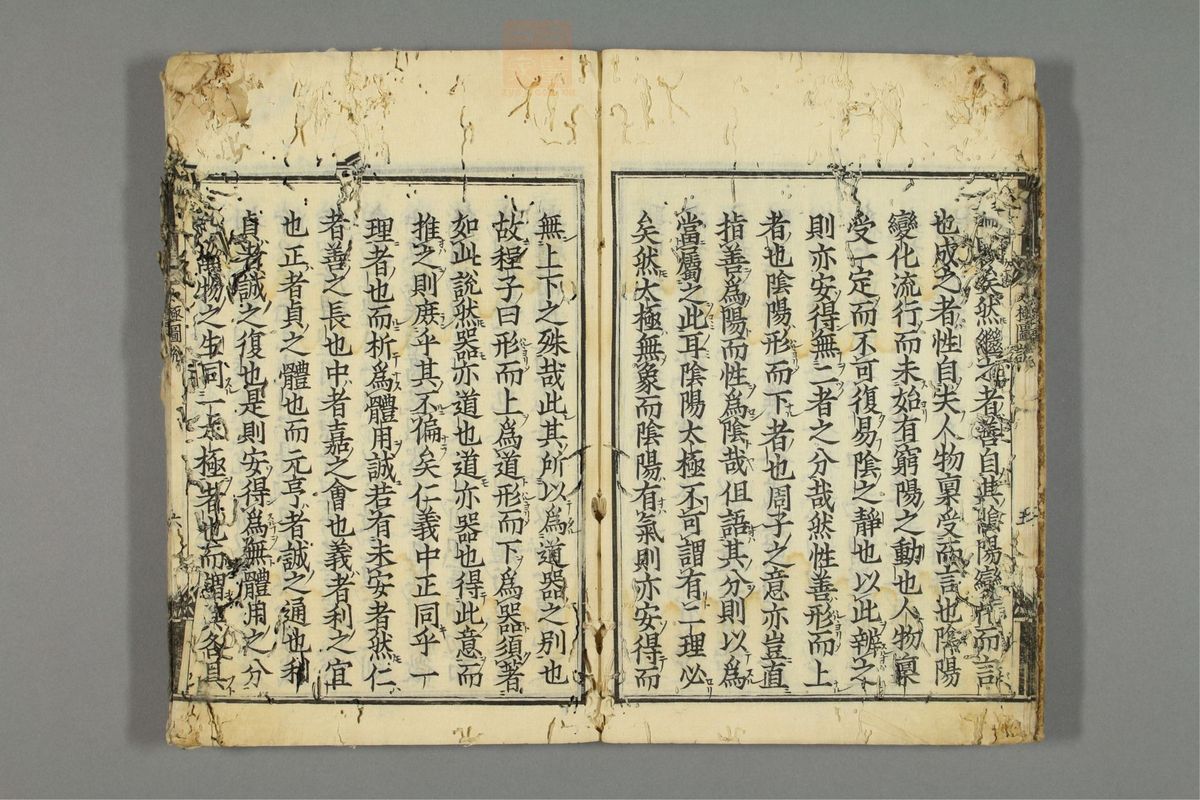 矣然繼之者善自其陰陽變化而言
也成之者性自夫人物稟受而言也陰陽
變化流行而未始有窮陽之動也人物稟
受一定而不可復易陰之靜也以此辨之
則亦安得無二者之分哉然性善形而上
者也陰陽形而下者也周子之意亦豈直
指善爲陽而性爲陰哉但語其分則以爲
當屬之此耳陰陽太極不可謂有二理必
矣然太極無象而陰陽有氣則亦安得而
無上下之殊哉此其所以爲道器之別也
故程子曰形而上爲道形而下爲器須著
如此說然器亦道也道亦器也得此意而
推之則庶乎其不偏矣仁義中正同乎一
理者也而析爲體用誠若有未安者然仁
者善之長也中者嘉之會也義者利之宜
也正者貞之體也而元亨者誠之通也利
貞者誠之復也是則安得爲無體用之分
物之生同一太極者也而謂其各具
極圖
六